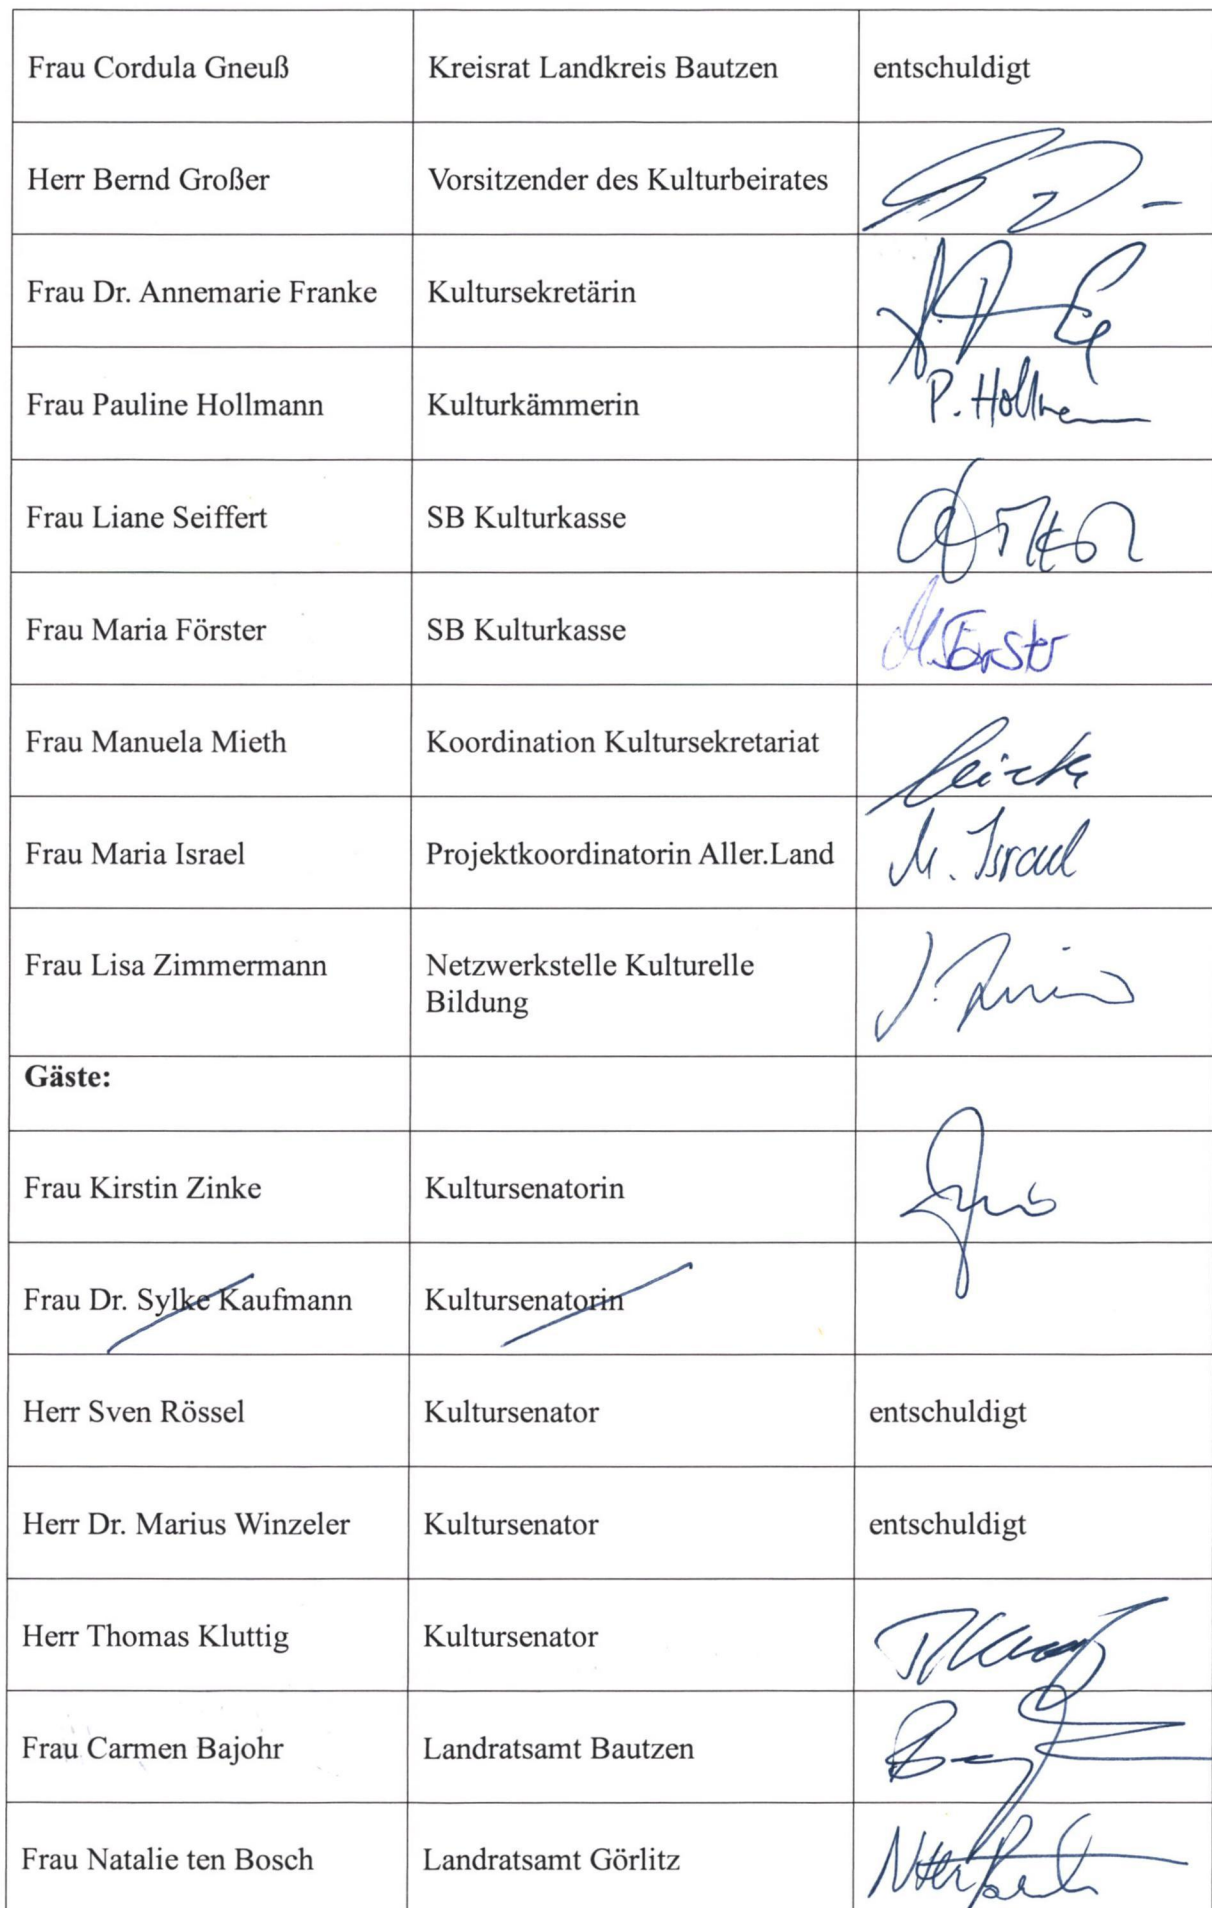 Frau Cordula Gneuß Kreisrat Landkreis Bautzen entschuldigt
Herr Bernd Großer Vorsitzender des Kulturbeirates
Frau Dr. Annemarie Franke Kultursekretärin
Frau Pauline Hollmann Kulturkämmerin P. Hollme
Frau Liane Seiffert SB Kulturkasse
Frau Maria Förster SB Kulturkasse M. Förster
Frau Manuela Mieth Koordination Kultursekretariat
Frau Maria Israel Projektkoordinatorin Aller.Land M. Israel
Frau Lisa Zimmermann Netzwerkstelle Kulturelle
Bildung
Gäste:
Frau Kirstin Zinke Kultursenatorin
Frau Dr. Sylke Kaufmann Kultursenatorin
Herr Sven Rössel Kultursenator entschuldigt
Herr Dr. Marius Winzeler Kultursenator entschuldigt
Herr Thomas Kluttig Kultursenator
Frau Carmen Bajohr Landratsamt Bautzen
Frau Natalie ten Bosch Landratsamt Görlitz